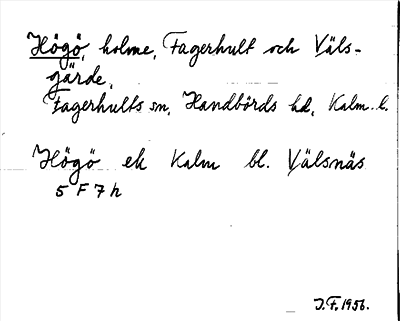 Högö, holme, Fagerhult och Väls-
gärde,
Fagerhults sn, Handbörds hd, Kalm. l.
Högö ek Kalm bl. Välsnäs
5 F 7 h
J.F. 1956.